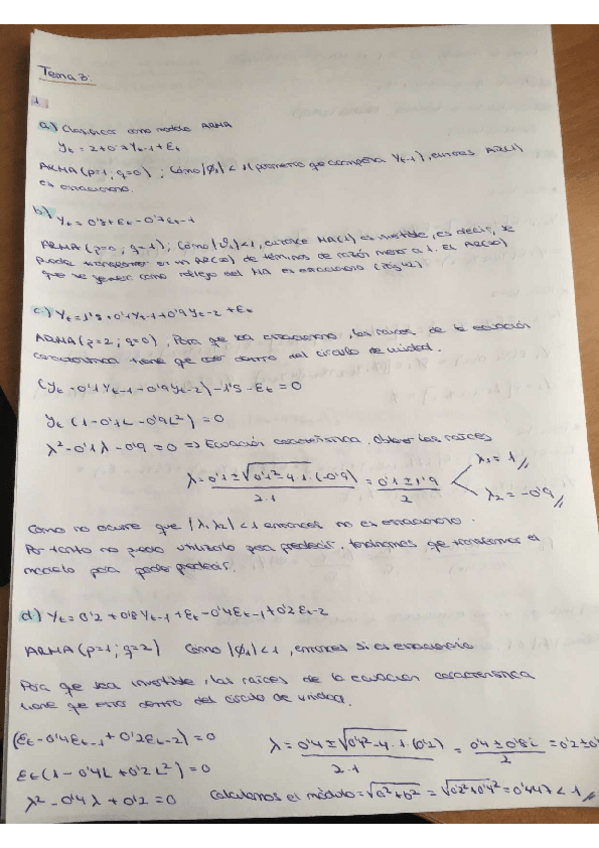 Tema 3.
1
a) Clasificar como modelo ARMA
Yt = 2 + 0'7Yt-1 + Et
ARMA (p=1, q=0) ; Como |Ø1| < 1 (parámetro que acompaña Yt-1), entonces AR(1)
es estacionario.
b) Yt = + Et - 0'7Et-1
ARMA (p=0 ; q=1) ; Como |θ1|<1, entonce MA(1) es invertible, es decir, se
puede transformar en un AR(∞) de términos de razón menor a 1. El AR(∞)
que se genera como reflejo del MA es estacionario (Pág 42)
c) Yt = 1'5 + 0'1Yt-1 + 0'9Yt-2 + Et
ARMA (p=2 ; q=0). Para que sea estacionario, las raíces de la ecuación
característica tiene que estar dentro del círculo de unidad.
(Yt - 0'1Yt-1 - 0'9Yt-2) - 1'5 - Et = 0
Yt (1 - 0'1L - 0'9L²) = 0
λ² - 0'1λ - 0'9 = 0 => Ecuación característica. Obtener las raíces
λ = 0'1 ± √0'1² - 4·1·(-0'9) / 2·1 = 0'1 ± 1'9 / 2 λ1 = 1 // λ2 = -0'9 //
Como no ocurre que |λ1 λ2| < 1 entonces no es estacionario.
Por tanto no puedo utilizarlo para predecir, tendríamos que transformar el
modelo para poder predecir.
d) Yt = 0'2 + 0'8Yt-1 + Et - 0'4Et-1 + 0'2Et-2
ARMA (p=1 ; q=2) Como |Ø1| < 1, entonces si es estacionario
Para que sea invertible, las raíces de la ecuación característica
tiene que estar dentro del círculo de unidad.
(Et - 0'4Et-1 + 0'2Et-2) = 0
Et (1 - 0'4L + 0'2L²) = 0
λ² - 0'4λ + 0'2 = 0
λ = 0'4 ± √0'4² - 4·1·(0'2) / 2·1 = 0'4 ± 0'8i / 2 = 0'2 ± 0'
Calculamos el módulo = √a² + b² = √0'2² + 0'4² = 0'447 < 1 //